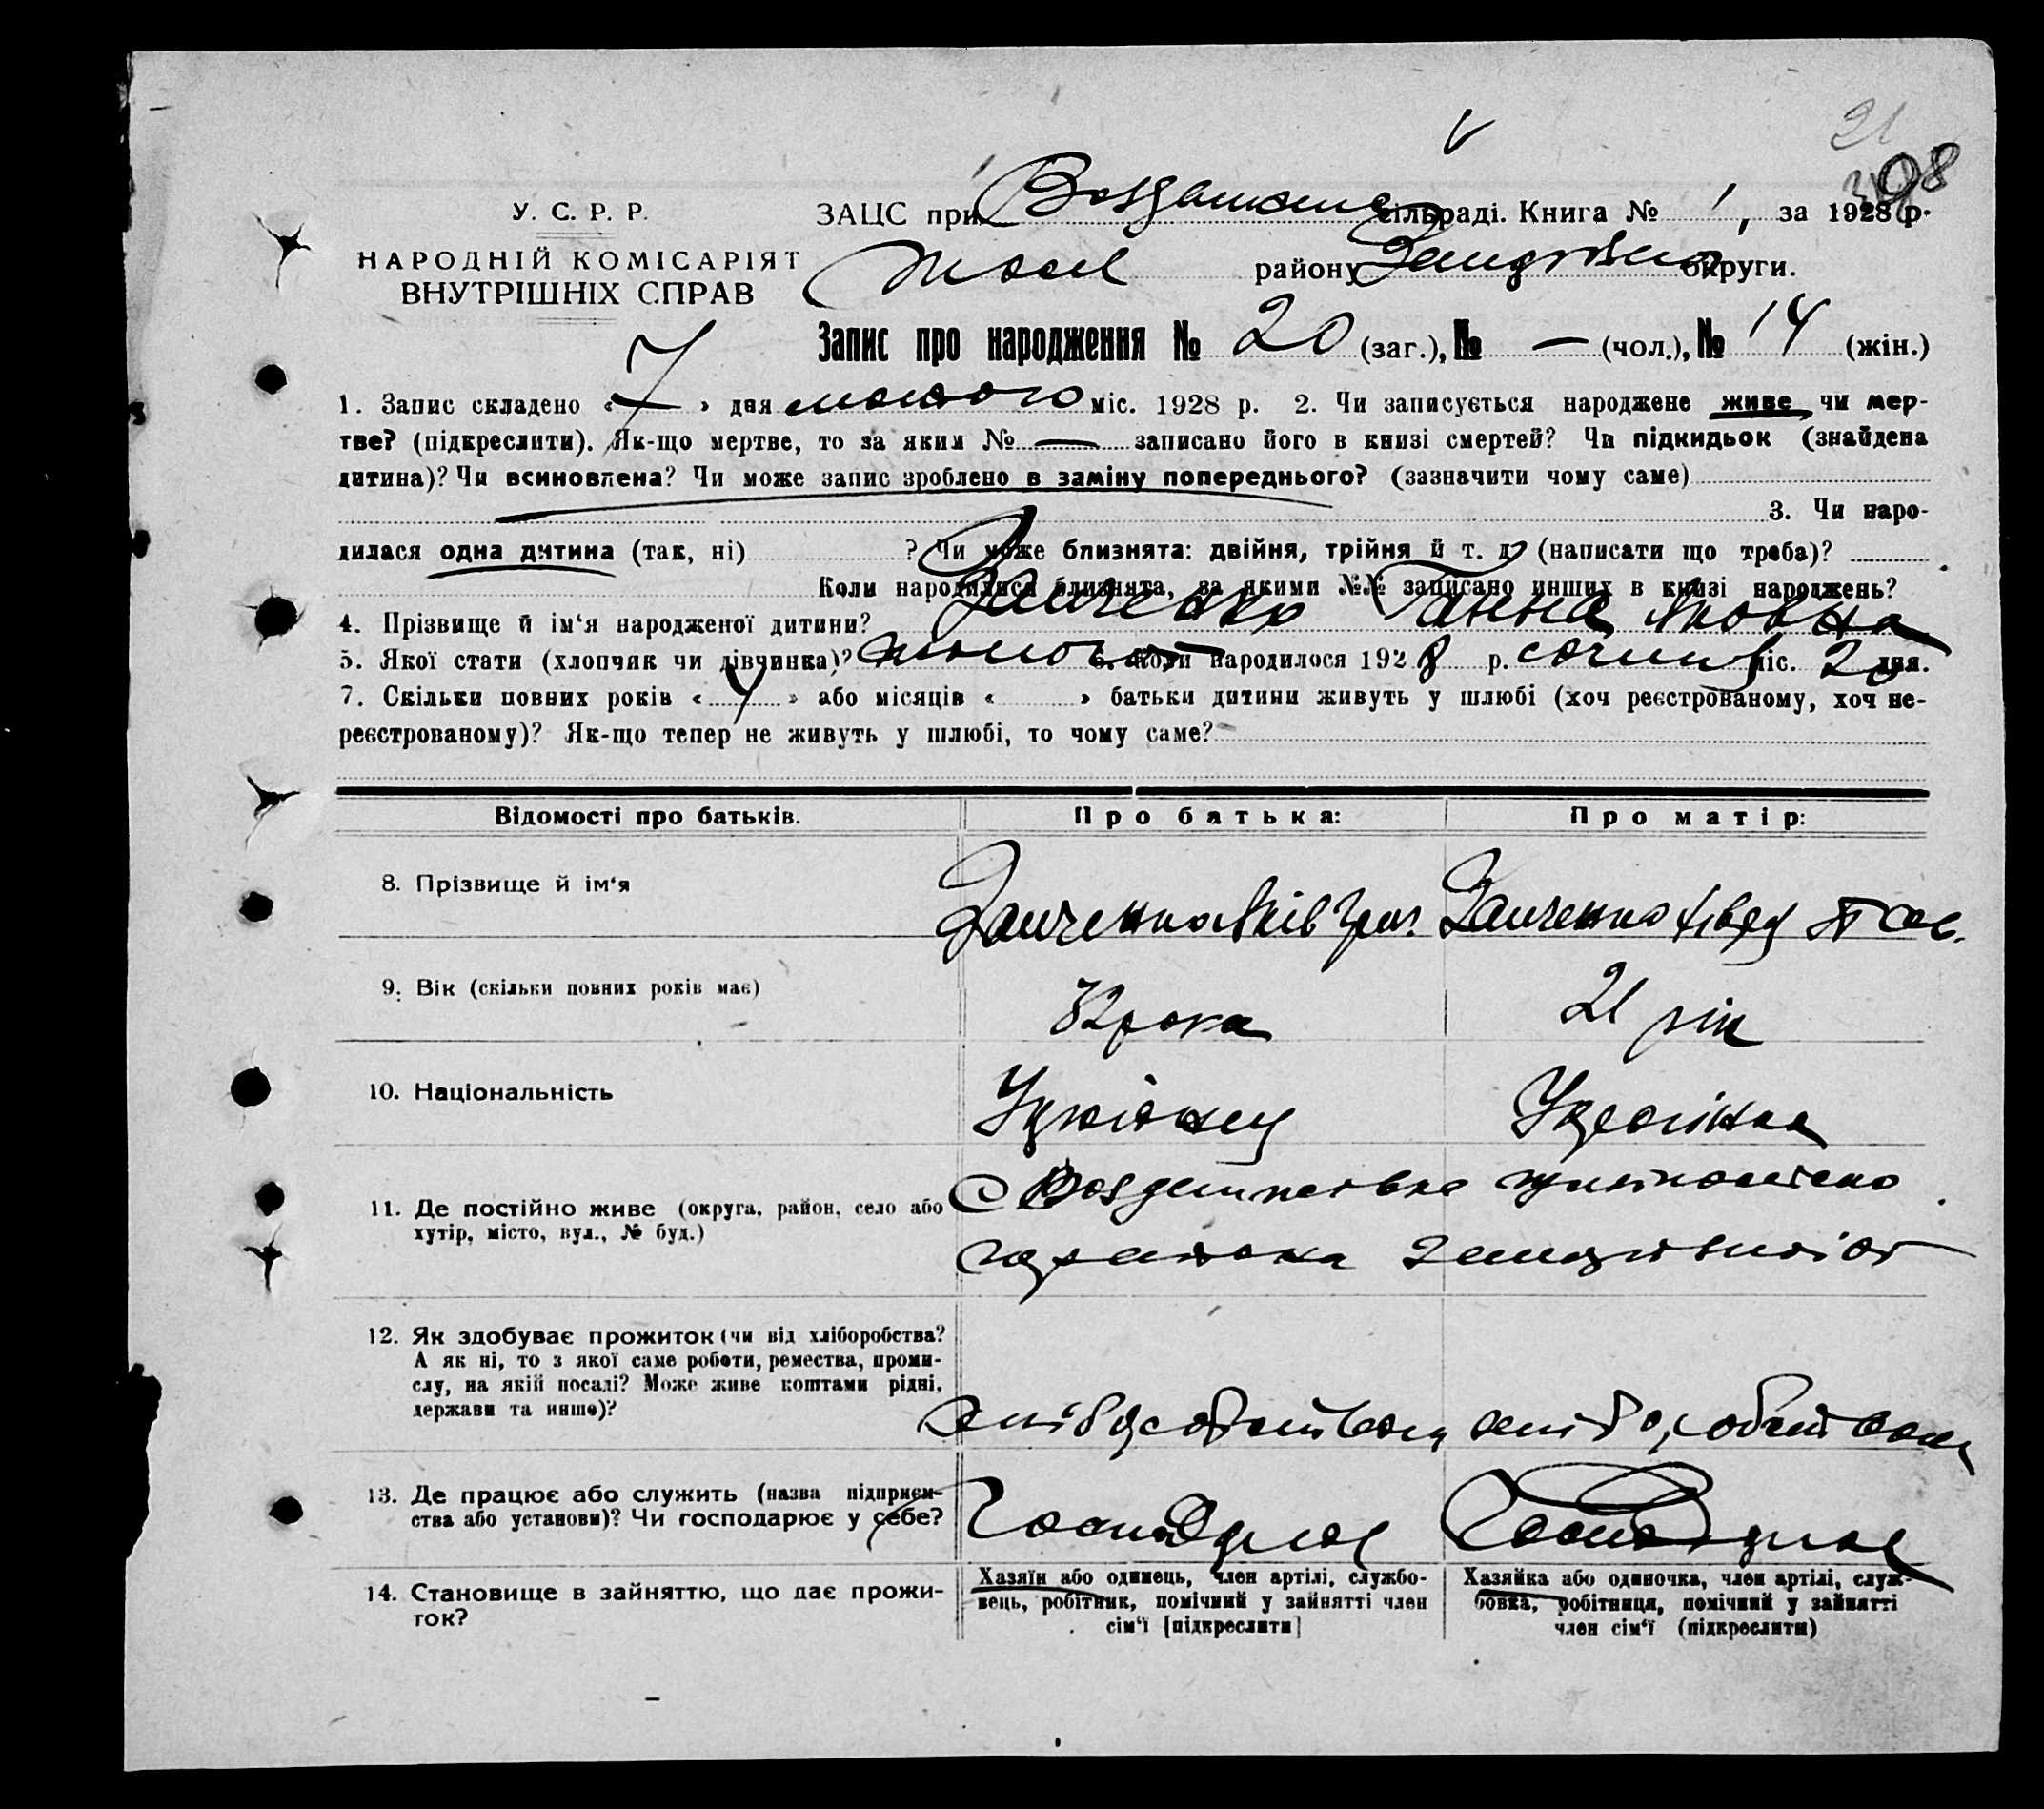 21
98
У. С. Р. Р.
ЗАЦС при сільраді. Книга № 1, за 1928 р.
НАРОДНІЙ КОМІСАРІЯТ
району округи.
ВНУТРІШНІХ СПРАВ
Запис про народження № 20 (заг.), № — (чол.), № 14 (жін.)
1. Запис складено « 7 » дня лютого міс. 1928 р. 2. Чи записується народжене живе чи мер-
тве? (підкреслити). Як-що мертве, то за яким № — записано його в книзі смертей? Чи підкидьок (знайдена
дитина)? Чи всиновлена? Чи може запис зроблено в заміну попереднього? (зазначити чому саме)
3. Чи наро-
дилася одна дитина (так, ні) ? Чи може близнята: двійня, трійня й т. д. (написати що треба)?
Коли народилися близнята, за якими №№ записано инших в книзі народжень?
4. Прізвище й ім‘я народженої дитини? Заиченко Ганна Яковна
5. Якої стати (хлопчик чи дівчинка)? жіночої 6. Коли народилося 1928 р. січня міс. 20 дня.
7. Скільки повних років « » або місяців « » батьки дитини живуть у шлюбі (хоч реєстрованому, хоч не-
реєстрованому)? Як-що тепер не живуть у шлюбі, то чому саме?
Відомості про батьків. Про батька: Про матір:
8. Прізвище й ім‘я Заиченко Яків Григ. Заиченко
9. Вік (скільки повних років має) 32 рока 21 рік
10. Національність Українец Українка
11. Де постійно живе (округа, район, село або
хутір, місто, вул., № буд.)
12. Як здобуває прожиток (чи від хліборобства?
А як ні, то з якої саме роботи, ремества, проми-
слу, на якій посаді? Може живе коштами рідні,
держави та инше)? хліборобством хліборобством
13. Де працює або служить (назва підприєм-
ства або установи)? Чи господарює у себе? Господарює Господарює
14. Становище в зайняттю, що дає прожи-
ток?
Хазяїн або одинець, член артілі, службо-
вець, робітник, помічний у зайнятті член
сім‘ї [підкреслити]
Хазяйка або одиночка, член артілі, служ-
бовка, робітниця, помічний у зайнятті
член сім‘ї (підкреслити)